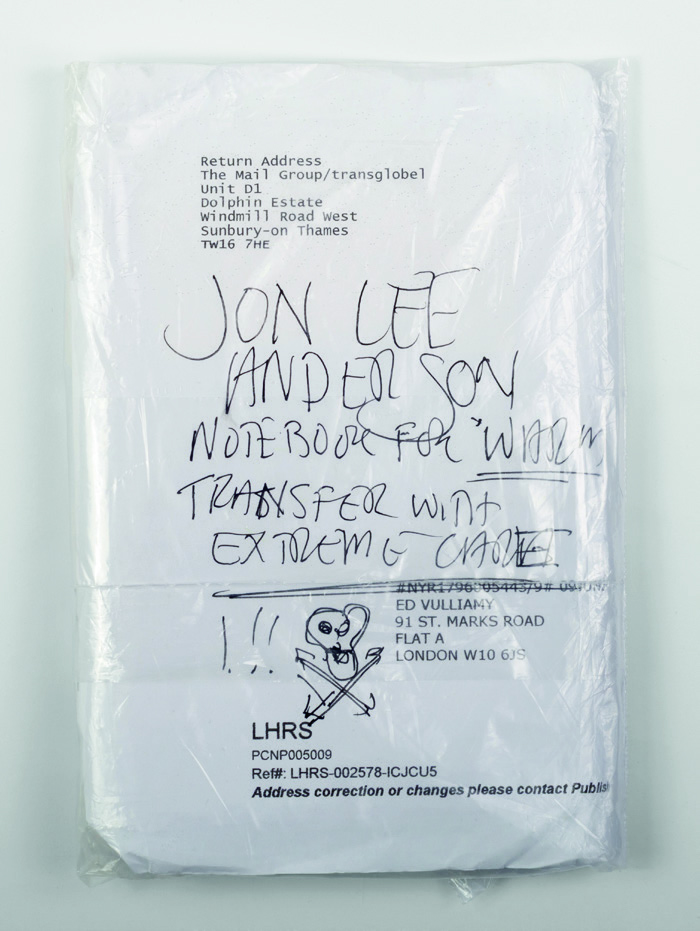 Return Address
The Mail Group/transglobel
Unit D1
Dolphin Estate
Windmill Road West
Sunbury-on Thames
TW16 7HE
JON LEE
ANDERSON
NOTEBOOK FOR "WAR"
TRANSFER WITH
EXTREME CARE
!!!
ED VULLIAMY
91 ST. MARKS ROAD
FLAT A
LONDON W10 6JS
LHRS
PCNP005009
Ref#: LHRS-002578-ICJCU5
Address correction or changes please contact Publis